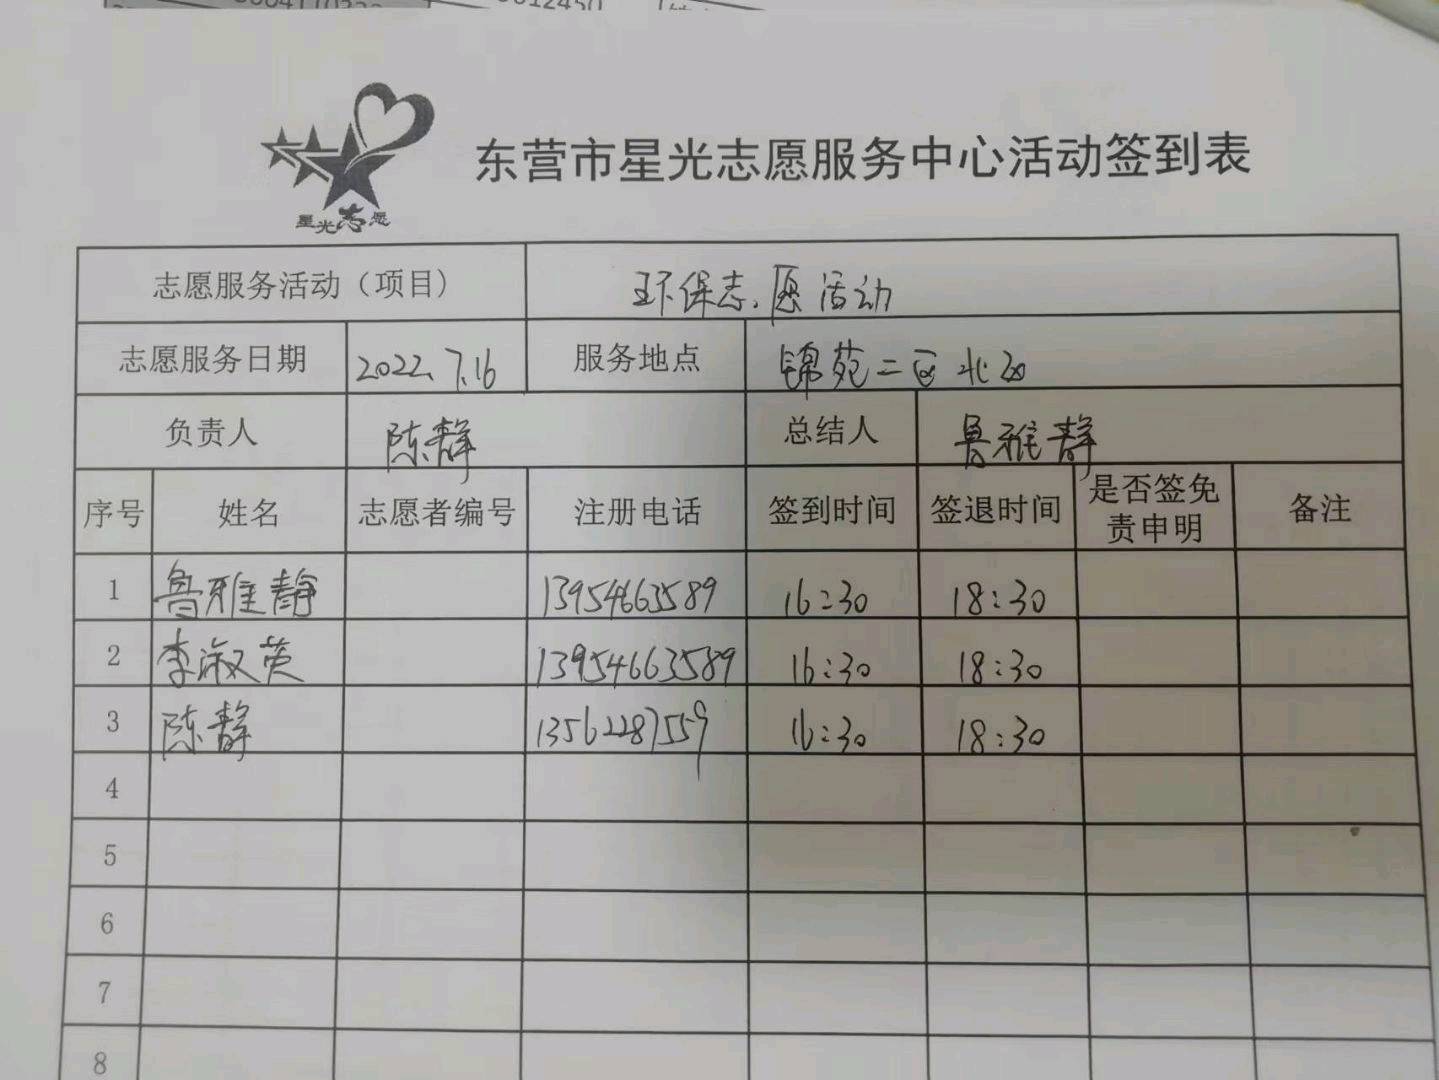 星光志愿
东营市星光志愿服务中心活动签到表
志愿服务活动（项目） 环保志愿活动
志愿服务日期 2022.7.16 服务地点 锦苑二区北区
负责人 陈静 总结人 鲁雅静
序号 姓名 志愿者编号 注册电话 签到时间 签退时间 是否签免责申明 备注
1 鲁雅静 13954663589 16:30 18:30
2 李淑英 13954663589 16:30 18:30
3 陈静 13562287559 16:30 18:30
4
5
6
7
8